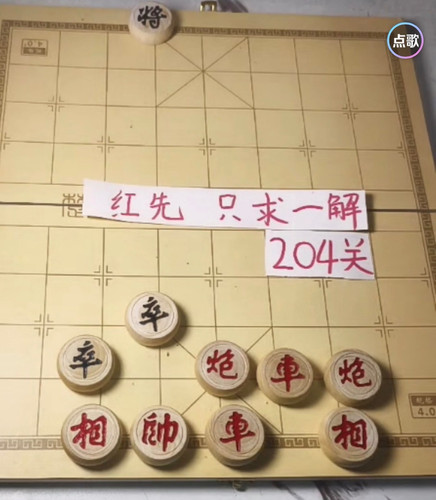 将
点歌
4.0
红先 只求一解
204关
卒
卒 炮 車 炮
4.0
相 帥 車 相